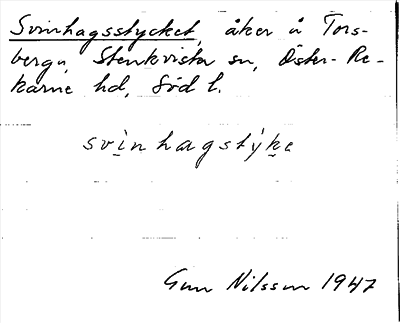 Svinhagsstycket, åker å Tors-
berga, Stenkvista sn, Öster-Re-
karne hd, Söd l.
svinhagstýke
Gun Nilsson 1947